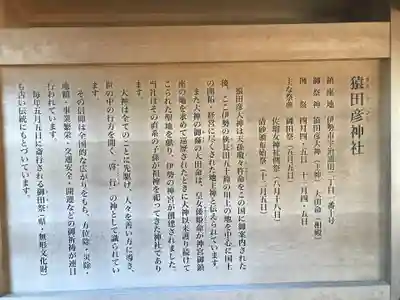 猿田彦神社
鎮座地 伊勢市宇治浦田二丁目一番十号
御祭神 猿田彦大神(主神)大田命(相殿)
例祭 四月四・五日 十一月四・五日
主な祭典 御田祭(五月五日)
佐瑠女神社例祭(八月十八日)
清砂頒布始祭(十二月五日)
猿田彦大神は天孫瓊々杵命をこの国に御案内された
後、ここ伊勢の狭長田五十鈴の川上の地を中心に国土
の開拓・経営に尽くされた地主神と伝えられています。
また大神の御裔の大田命は、皇女倭姫命が神宮御鎮
座の地を求めて巡歴されたときに大神以来護り続けて
こられた聖地を献り、伊勢の神宮が創建されました。
当社はその直系の子孫が祖神を祀ってきた神社であり
ます。
大神は全てのことに先駆け、人々を善い方に導き、
世の中の行方を開く〝啓行〟の神として識られてい
ます。
その信仰は全国的な広がりをもち、方位除・災除・
地鎮・事業繁栄・交通安全・開運などの御祈祷が連日
行われています。
毎年五月五日に斎行される御田祭(県・無形文化財)
も古い伝統にもとづいています。